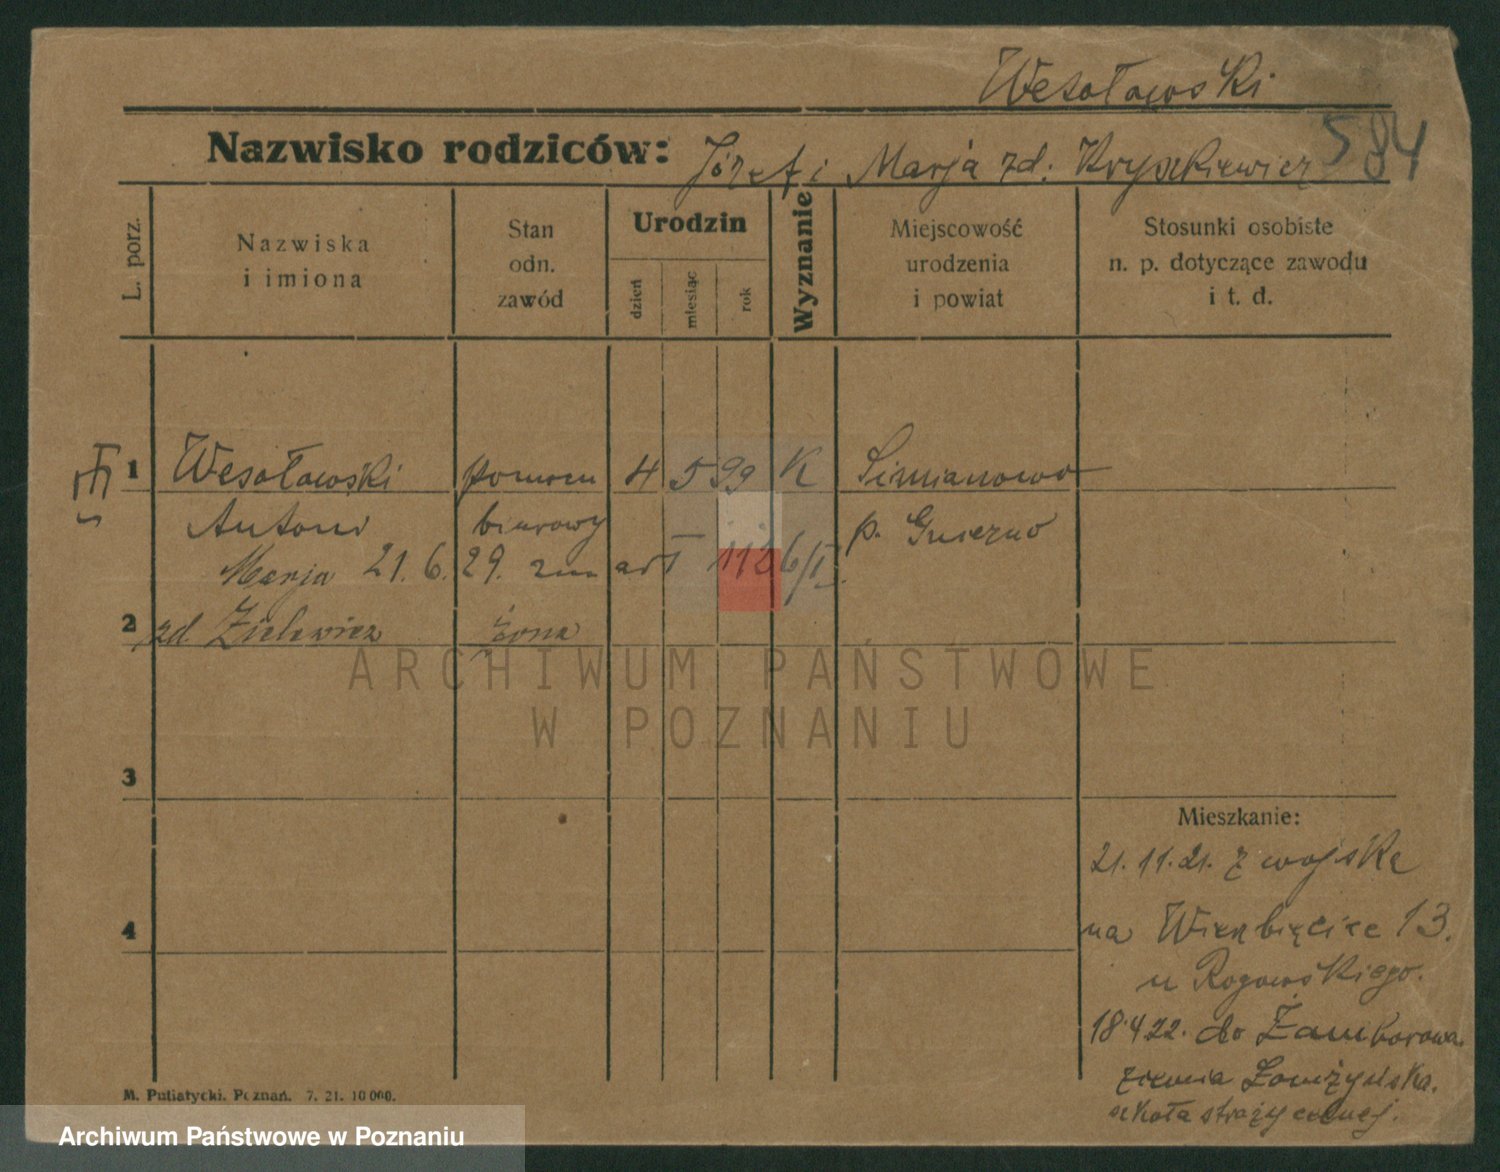 Wesołowski
584
Nazwisko rodziców: Józef i Marja zd. Kryszkiewicz
L. porz.
Nazwiska i imiona
Stan odn. zawód
Urodzin
dzień
miesiąc
rok
Wyznanie
Miejscowość urodzenia i powiat
Stosunki osobiste n. p. dotyczące zawodu i t. d.
1 Wesołowski pomocn 4 5 99 K Simianowo
Antoni biurowy p. Gniezno
Marja 21. 6. 29.
2 zd Zielewicz żona
ARCHIWUM PAŃSTWOWE
W POZNANIU
3
4
Mieszkanie:
21.11.21. z wojska
na Wierzbięcice 13.
u Rogowskiego.
18.4.22. do Zamborowa
ziemia Łomżyńska.
szkoła straży celnej.
M. Putiatycki, Poznań. 7. 21. 10 000.
Archiwum Państwowe w Poznaniu